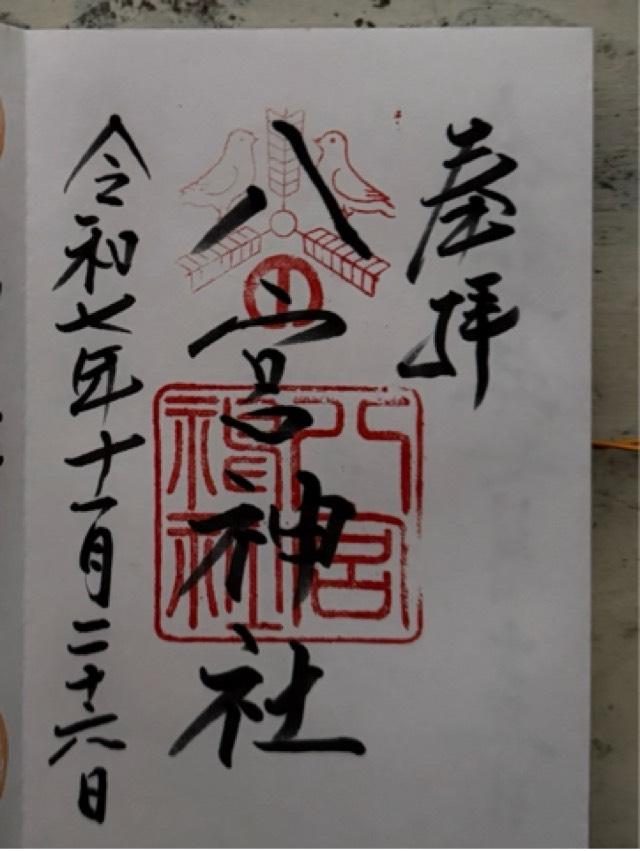 奉拝
八宮神社
八宮神社
令和七年十一月二十六日